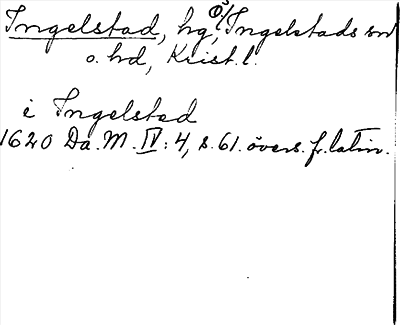 Ingelstad, hg, Ö/Ingelstads sn
o. hd, Krist. l.
i Ingelstad
1620 Da. M. IV: 4, s. 61. övers. fr. latin.